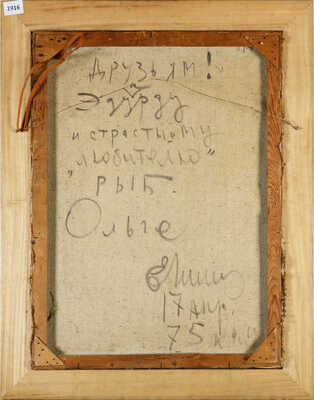 1916
Друзьям!
Эдуарду
и страстному
"любителю"
рыб.
Ольге
17 апр.
75